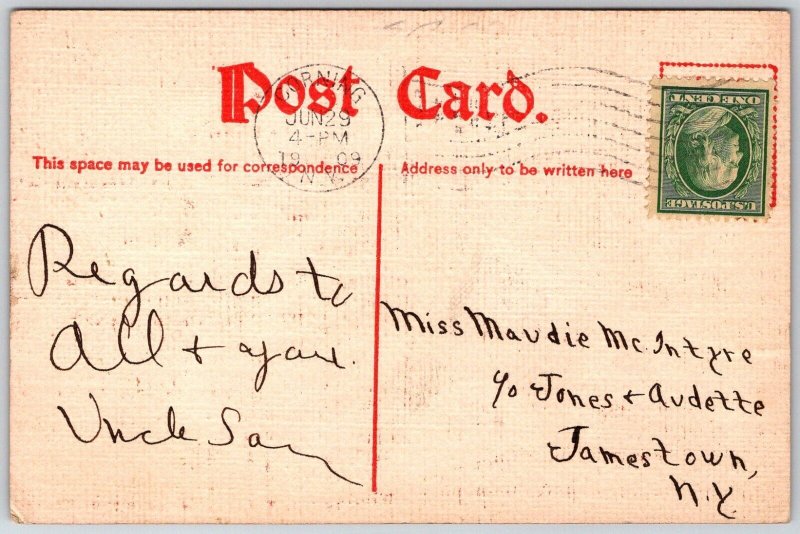 Post Card.
CORNING
JUN 29
4-PM
1909
N.Y.
ONE CENT
U.S. POSTAGE
This space may be used for correspondence
Address only to be written here
Regards to
All + you.
Uncle Sam
Miss Maudie McIntyre
c/o Jones + Audette
Jamestown,
N.Y.